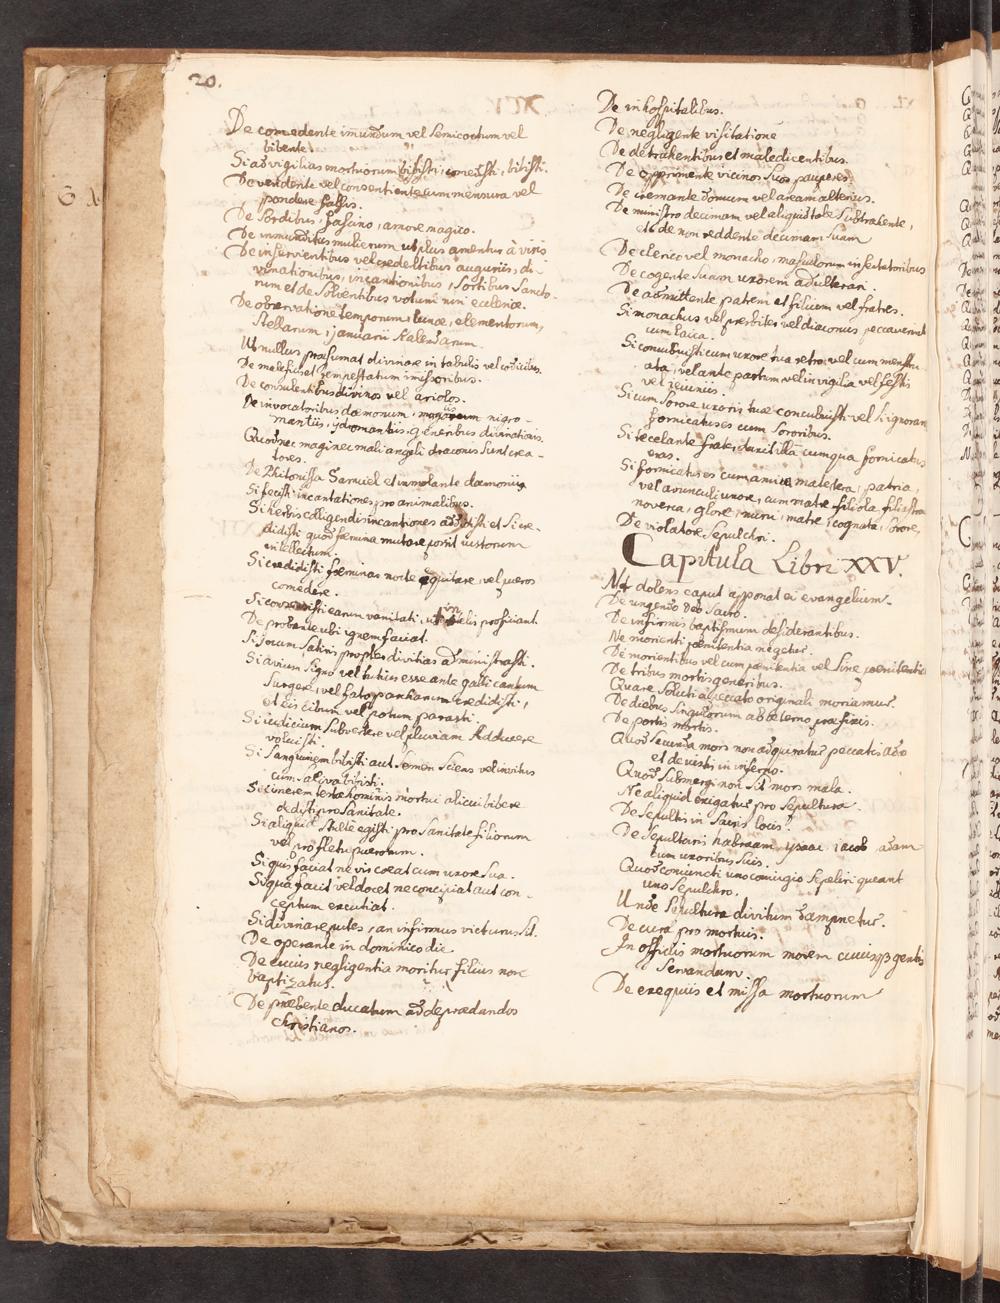 20.
De comedente imundum vel semicoctum vel
bibente.
Si ad vigilias mortuorum bibisti, comedisti, bibisti.
De vendente vel consentiente cum mensura vel
pondere falsis.
De sordibus, fascino, amore magico.
De inmunditiis mulierum ut plus amentur à viris
De inservientibus vel credentibus auguriis, di-
vinationibus, incantionibus, sortibus Sancto-
rum et de solventibus votum nisi ecclesiæ.
De observatione temporum, lunæ, elementorum,
stellarum, januarii Kalendarum.
Ut nullus præsumat divinare in tabulis vel codicibus.
De maleficis et tempestatum imissoribus.
De consulentibus divinos vel ariolos.
De invocatoribus dæmonum, nigro-
mantiis, ydromantiis, generibus divinationis.
Quod nec magi nec mali angeli draconis sunt crea-
tores.
De Phitonissa Samuel et inmolante dæmoniis
Si fecisti incantationes pro animalibus.
Si herbis colligendi incantiones addidisti et si cre-
didisti quod fæmina mutare possit virtorum
intellectum.
Si credidisti fæminas nocte equitare, vel pueros
comedere.
Si consensisti earum vanitati, ut in velis proficiant
De probante ubi ignem faciat.
Si jocum Satiris propter divitias administrasti.
Si avium signo vel tutius esse ante galli cantum
surgere, vel fato parcharum credidisti,
et eis cibum vel potum parasti.
Si iudicium subvertere vel pluviam adducere
voluisti.
Si sanguinem bibisti aut semen sciens vel invitus
cum saliva bibisti.
Si cinerem testæ hominis mortui alicui bibere
dedisti pro sanitate.
Si aliquid stulte egisti pro sanitate filiorum
vel pro fletu puerorum.
Si quis faciat ne vir coeat cum uxore sua.
Si qua facit vel docet ne concipiat aut con-
ceptum excutiat.
Si divinare putes, an infirmus victurus sit.
De operante in dominico die.
De cuius negligentia moritur filius non
baptizatus.
De præbente ducatum ad deprædandos
christianos.
De inhospitalibus.
De negligente visitatione
De detrahentibus et maledicentibus.
De opprimente vicinos suos pauperes.
De cremante domum vel aream alterius.
De ministro decimam vel aliquid tale subtrahente,
et de non reddente decimam suam
De clerico vel monacho, masculorum insectatoribus
De cogente suam uxorem adulterari.
De admittente patrem et filium vel fratres.
Si monachus vel presbiter vel diaconus peccaverit
cum laica.
Si concubuisti cum uxore tua retro, vel cum menstru-
ata, vel ante partum vel in vigilia vel festis
vel ieiuniis.
Si cum sorore uxoris tuæ concubuisti vel si ignorans
fornicatus es cum sororibus.
Si te celante frater duxit illam cum qua fornicatus
eras.
Si fornicatus es cum amita, matertera, patria,
vel avunculi uxore, cum matre, filiola, filiastra
noverca, glore, nuru, matre, cognata, sorore,
De violatore sepulchri.
Capitula Libri XXV.
Ut dolens caput apponat ei evangelium.
De ungendo deo sacro.
De infirmis baptismum desiderantibus.
Ne morienti pænitentia negetur.
De morientibus vel cum pænitentia vel sine pænitentia
De tribus mortis generibus.
Quare soluti a peccato originali moriamur.
De diebus singulorum ab æterno præfixis.
De portis mortis.
Quod secunda mors non adquiratur peccatis
et de vestri in inferno.
Quod submergi non sit mors mala.
Ne aliquid exigatur pro sepultura.
De sepultis in sacris locis.
De sepulturis habraam, ysaac, iacob, adam
cum uxoribus suis.
Quod coniuncti uno coniugio sepeliri queant
uno sepulchro.
Unde sepultura divitum dampnetur.
De cura pro mortuis.
In officiis mortuorum morem cuiusq3 gentis
servandum.
De exequiis et missa mortuorum